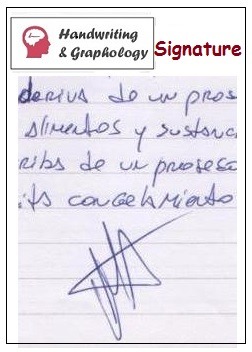 Handwriting
& Graphology
Signature
deriva de un pros
alimentos y sustanc
de un proseso
congelamiento